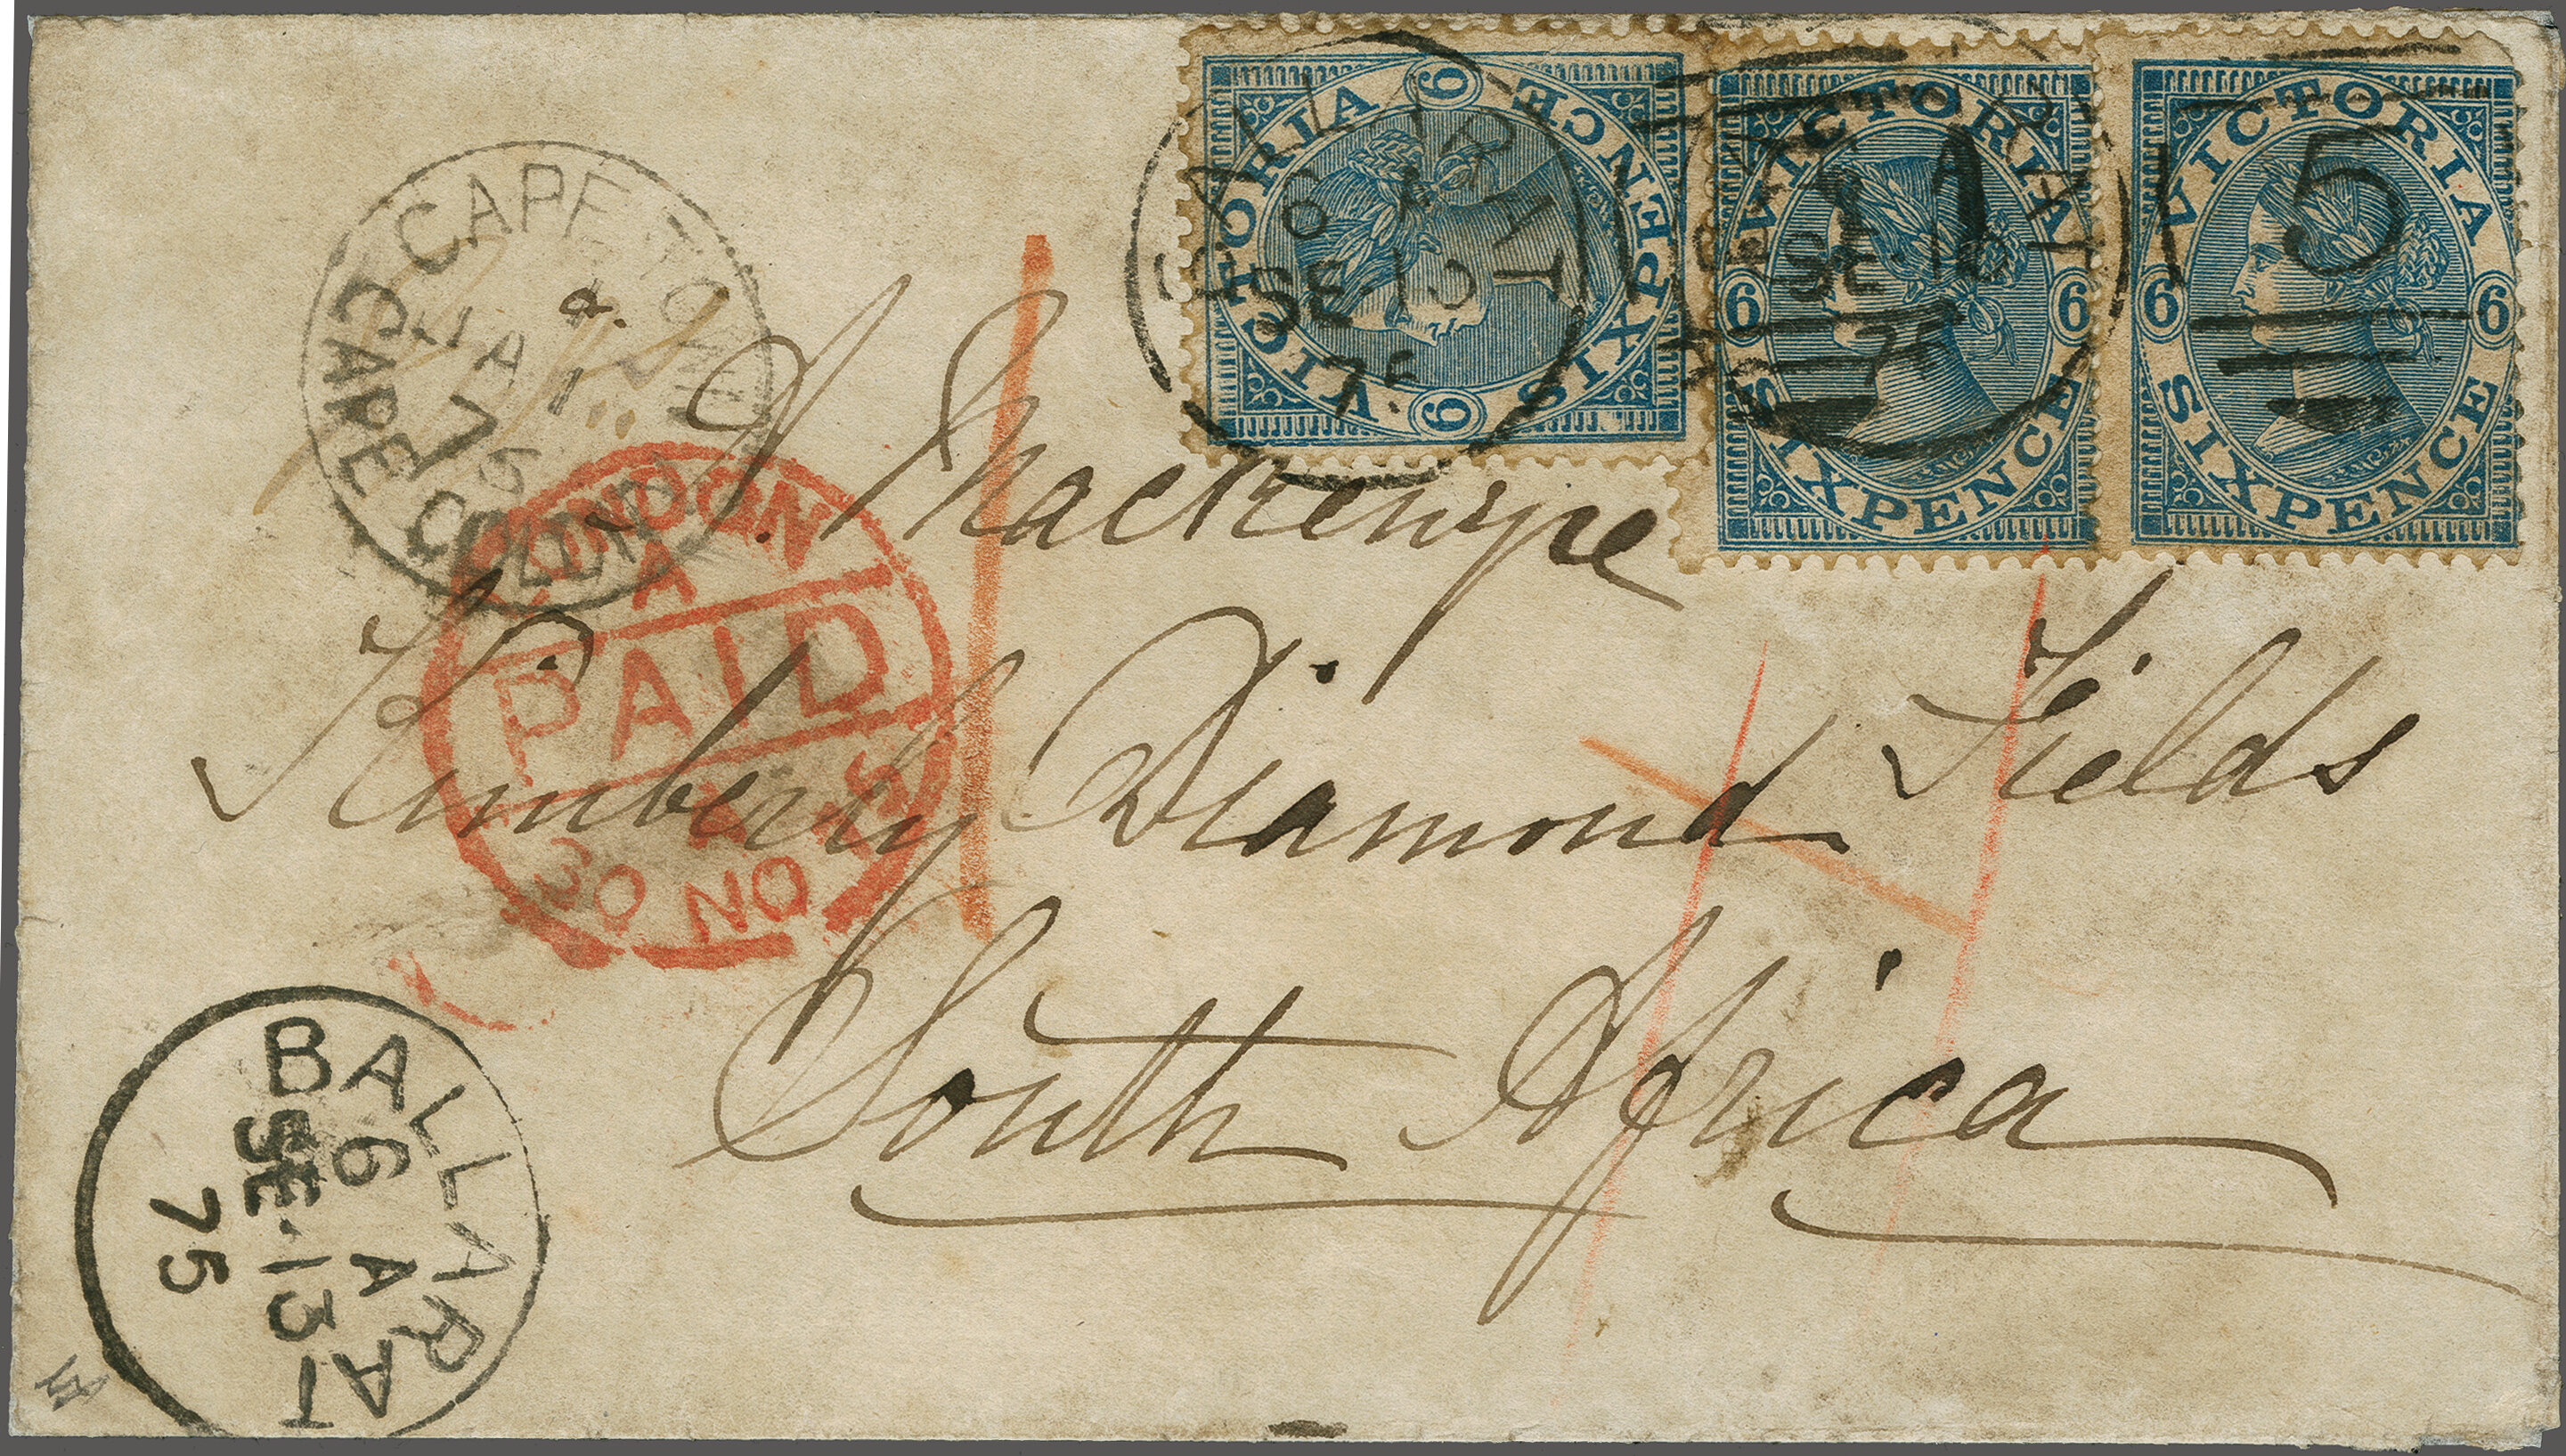 VICTORIA SIXPENCE 6 6
VICTORIA SIXPENCE 6 6
VICTORIA SIXPENCE 6 6
BALLARAT
SE 13
75
5
CAPE TOWN
JA 1
76
CAPE COLONY
A Mackenzie
Kimberly Diamond Fields
South Africa
LONDON
A
PAID
30 NO 75
BALLARAT
6 A
SE.13
75